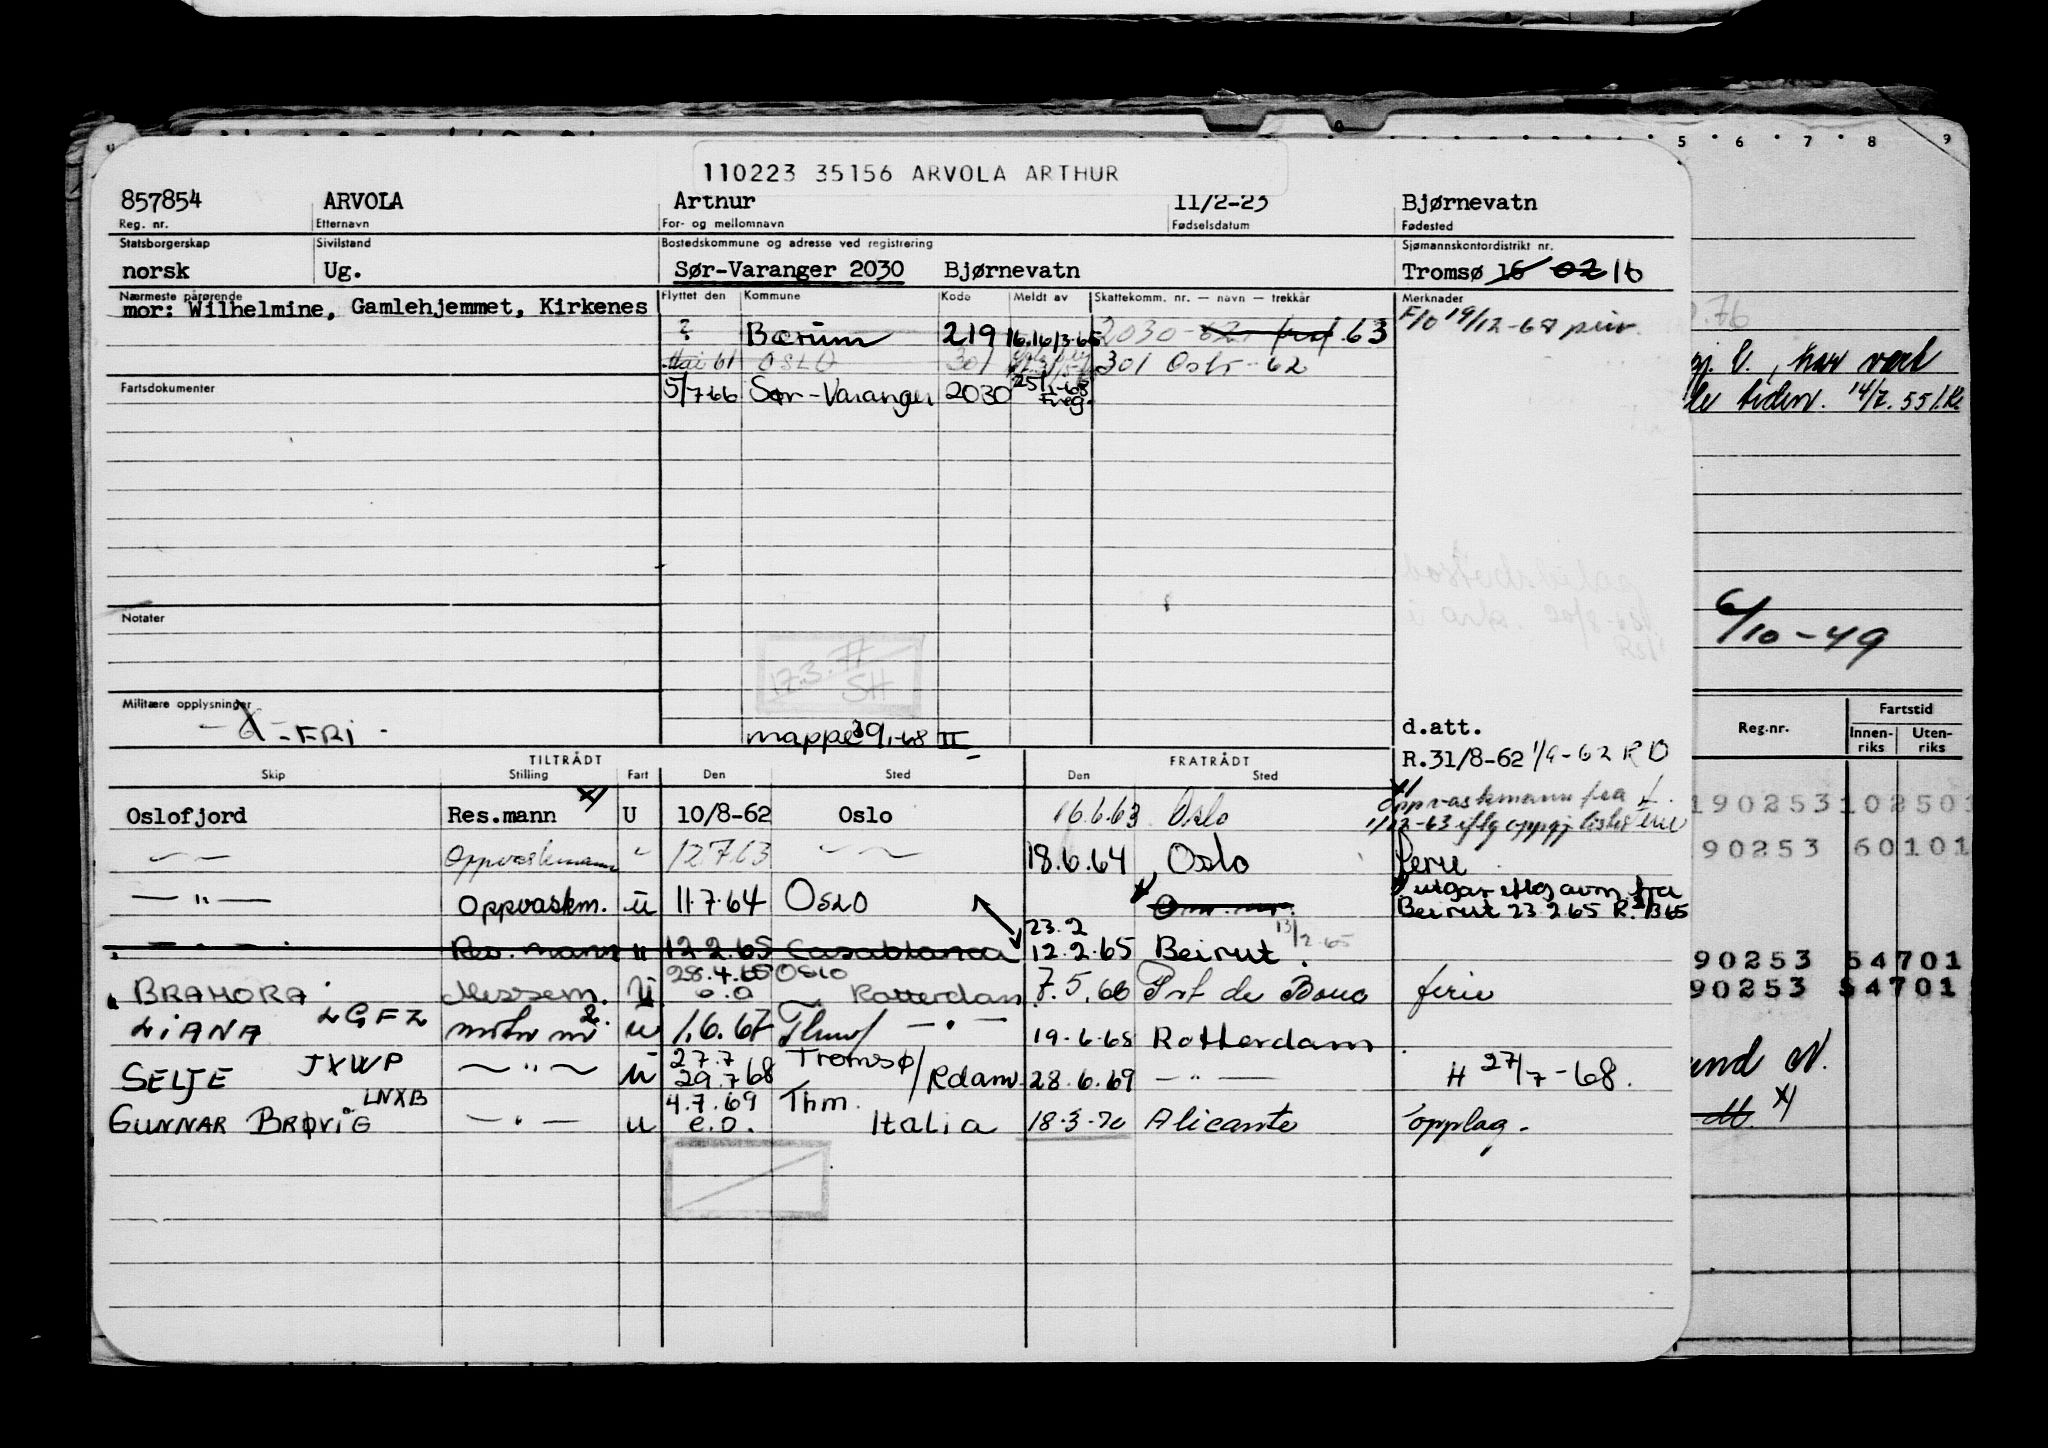 5 6 7 8 9
110223 35156 ARVOLA ARTHUR
857854 ARVOLA Arthur 11/2-23 Bjørnevatn
Reg. nr. Etternavn For- og mellomnavn Fødselsdatum Fødested
Statsborgerskap Sivilstand Bostedskommune og adresse ved registrering Sjømannskontordistrikt nr.
norsk Ug. Sør-Varanger 2030 Bjørnevatn Tromsø 16 02 16
Nærmeste pårørende Flyttet den Kommune Kode Meldt av Skattekomm. nr. — navn — trekkår Merknader
mor: Wilhelmine, Gamlehjemmet, Kirkenes
? Bærum 219 2030 63
Mai 61 OSLO 301 301 Oslo - 62
Fartsdokumenter 5/7 66 Sør-Varanger 2030 25/1-68 Freg.
har vært
tiden. 14/7. 55
Notater
6/10-49
17.3.77
SH
Militære opplysninger
X - FRI -
mappe 39.-68 II
d.att.
R.31/8-62 1/9-62 R O
Reg.nr. Fartstid
Innen-riks Uten-riks
TILTRÅDT FRATRÅDT
Skip Stilling Fart Den Sted Den Sted
Oslofjord Res.mann x) U 10/8-62 Oslo 16.6.63 Oslo
x) Oppvaskmann fra
190253 102501
— " — Oppvaskmann " 12 7 63 — " — 18.6.64 Oslo ferie
90253 60101
— " — Oppvaskm. u 11.7.64 Oslo
utgår iflg avm. fra
Beirut 23.2.65
— " — Res. mann u 12.2.65 Casablanca 23.2 12.2.65 Beirut. 13/2-65
90253 54701
BRAMORA Messem. U 28.4.65 Oslo e.o Rotterdam 7.5.66 Prt de Bouc ferie
90253 54701
LIANA LGFZ motor m 2. u 1.6.67 — " — 19.6.68 Rotterdam
SELJE JXWP — " — u 27.7 29.7 68 Tromsø/Rdam 28.6.69 — " — H 27/7-68.
GUNNAR BRØVIG LNXB — " — u 4.7.69 e.o. Thm. Italia 18-3-70 Alicante opplag.